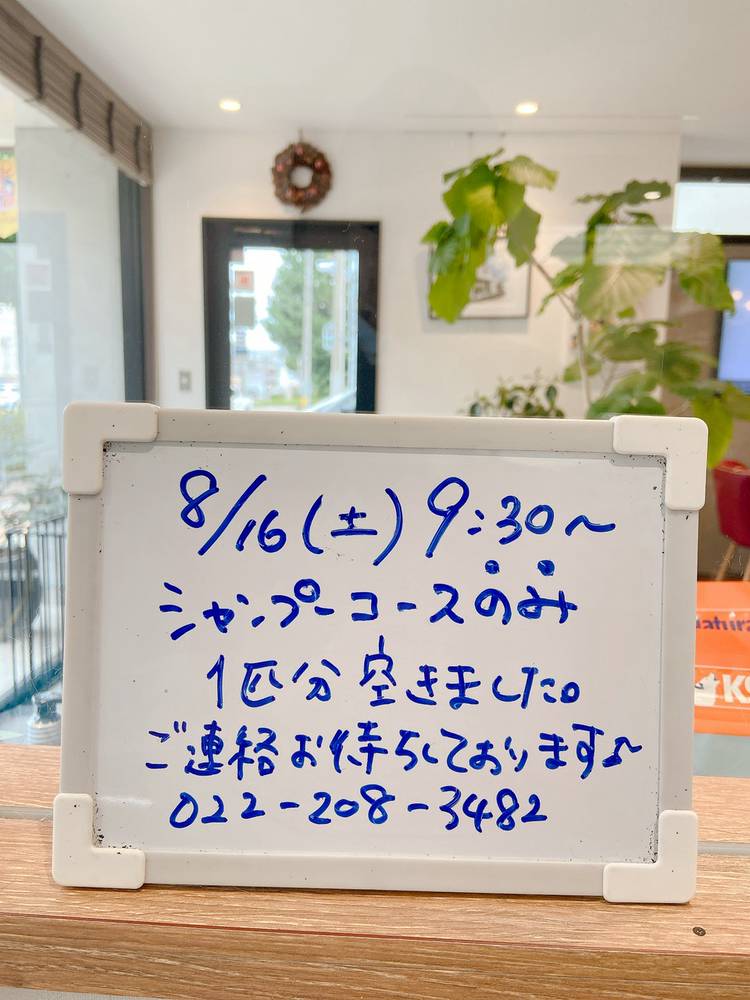 8/16(土) 9:30～
シャンプーコースのみ
1匹分空きました。
ご連絡お待ちしております♪
022-208-3482
KS